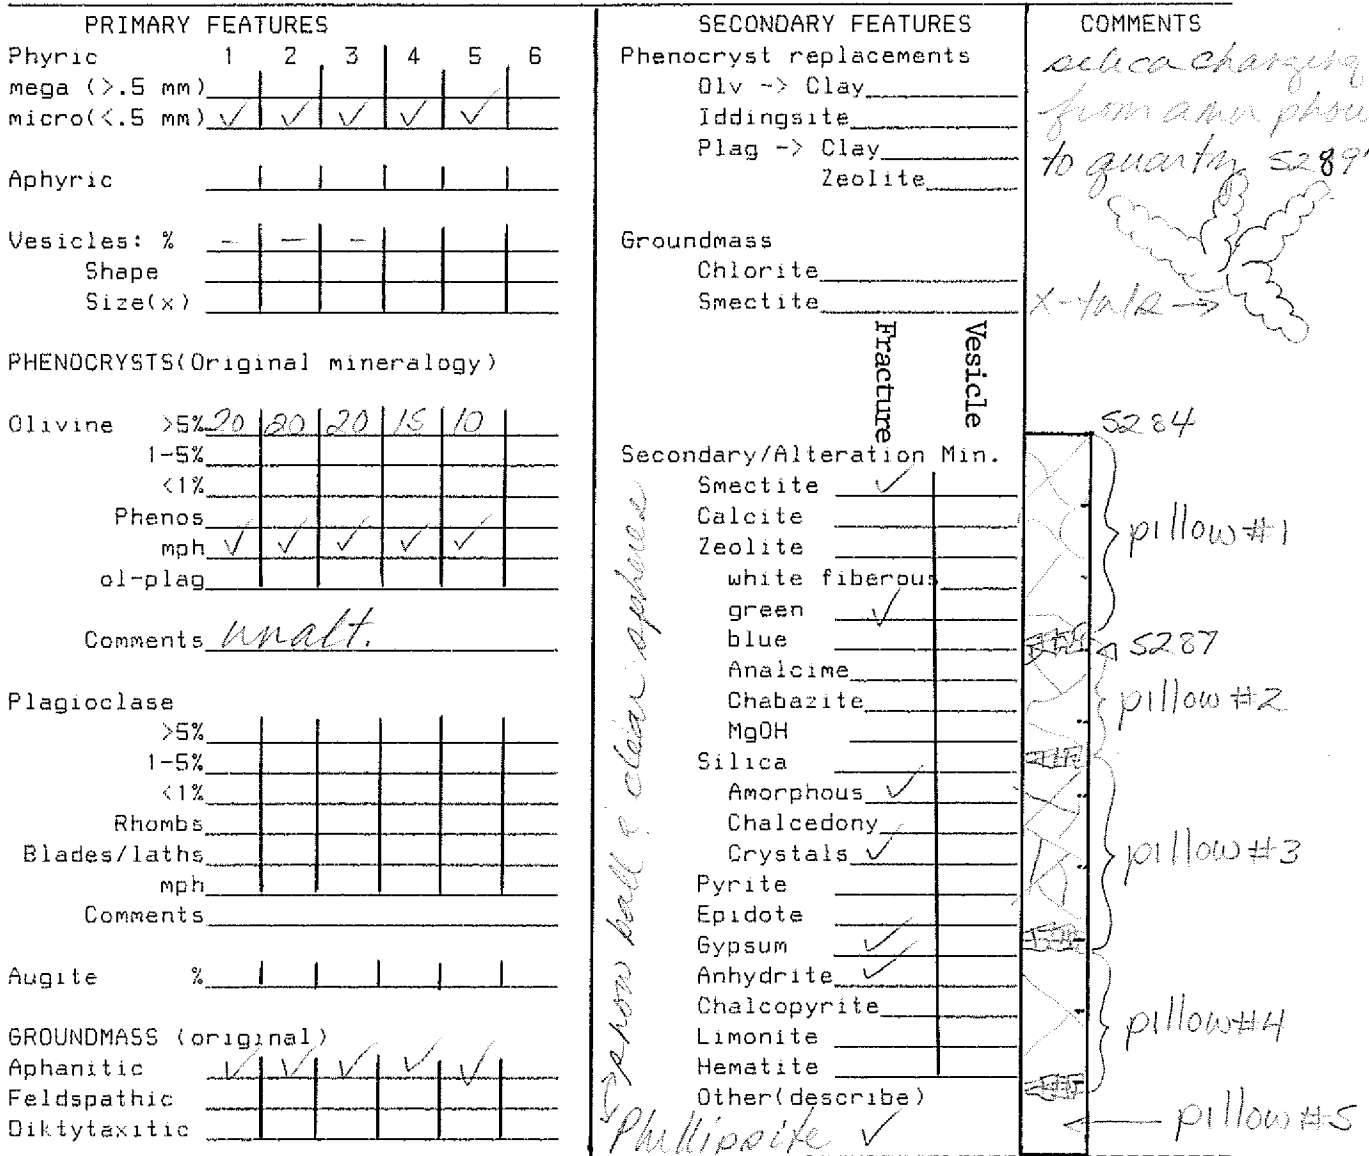 PRIMARY FEATURES
Phyric 1 2 3 4 5 6
mega (>.5 mm)
micro(<.5 mm) ✓ ✓ ✓ ✓ ✓
Aphyric
Vesicles: % - - -
Shape
Size(x)
PHENOCRYSTS(Original mineralogy)
Olivine >5% 20 20 20 15 10
1-5%
<1%
Phenos
mph ✓ ✓ ✓ ✓ ✓
ol-plag
Comments unalt.
Plagioclase
>5%
1-5%
<1%
Rhombs
Blades/laths
mph
Comments
Augite %
GROUNDMASS (original)
Aphanitic ✓ ✓ ✓ ✓ ✓
Feldspathic
Diktytaxitic
SECONDARY FEATURES
Phenocryst replacements
Olv -> Clay
Iddingsite
Plag -> Clay
Zeolite
Groundmass
Chlorite
Smectite
Fracture
Vesicle
Secondary/Alteration Min.
Smectite ✓
Calcite
Zeolite
white fiberous
green ✓
blue
Analcime
Chabazite
MgOH
Silica
Amorphous ✓
Chalcedony
Crystals ✓
Pyrite
Epidote
Gypsum ✓
Anhydrite ✓
Chalcopyrite
Limonite
Hematite
Other(describe)
Phillipsite ✓
snow ball & clear spheres
COMMENTS
silica changing
from amorphou
to quartz 5289'
x-tals →
5284
pillow #1
5287
pillow #2
pillow #3
pillow #4
pillow #5